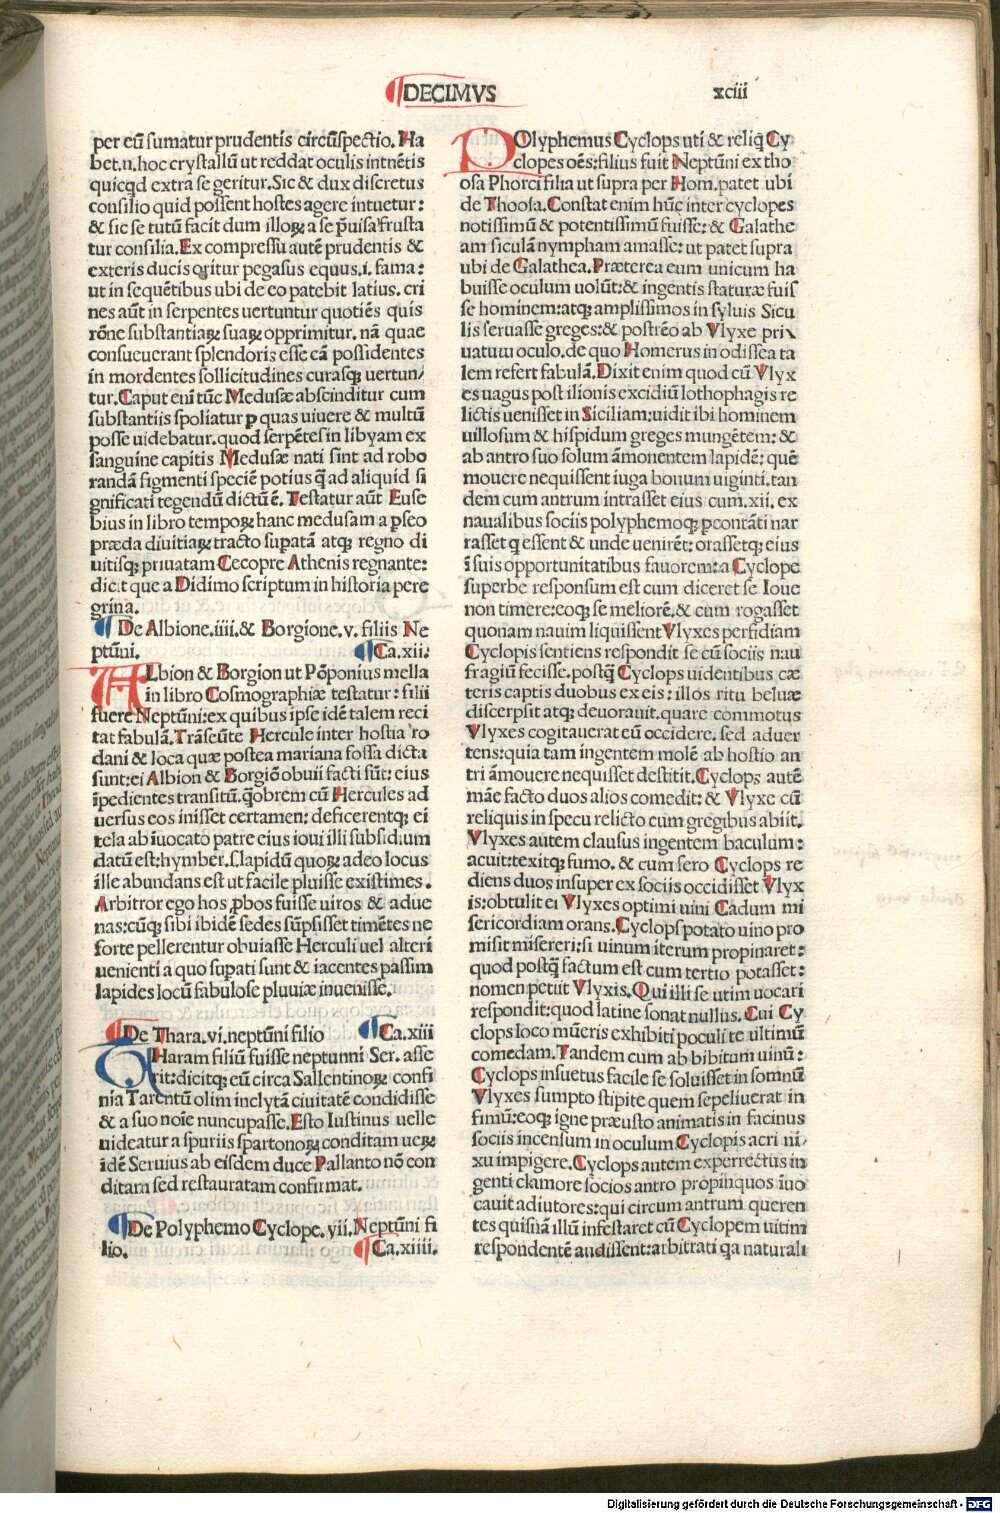 DECIMVS
xciii
per eū sumatur prudentis circūspectio. Ha
bet.n.hoc crystallū ut reddat oculis intnētis
quicqd extra se geritur. Sic & dux discretus
consilio quid possent hostes agere intuetur:
& sic se tutū facit dum illoꝝ a se puisa frusta
tur consilia. Ex compressu autē prudentis &
exteris ducis oritur pegasus equus.i. fama:
ut in sequētibus ubi de eo patebit latius. cri
nes aūt in serpentes uertuntur quotiēs quis
rōne substantiaꝝ suaꝝ opprimitur. nā quae
consueuerant splendoris esse cā possidentes
in mordentes sollicitudines curasqꝫ uertun/
tur. Caput eni tūc Medusæ abscinditur cum
substantiis spoliatur ꝑ quas uiuere & multū
posse uidebatur. quod serpētes in libyam ex
sanguine capitis Medusæ nati sint ad robo
randā figmenti speciē potius q̄ ad aliquid si
gnificati tegendū dictū ē. Testatur aūt Euse
bius in libro tempoꝝ hanc medusam a pseo
præda diuitiaꝝ tracto supatā atqꝫ regno di
uitisqꝫ priuatam Cecopre Athenis regnante:
dicit que a Didimo scriptum in historia pere
grina.
De Albione.iiii.& Borgione.v. filiis Ne
ptūni. Ca.xii.
ALbion & Borgion ut Pōponius mella
in libro Cosmographiæ testatur: filii
fuere Neptūni: ex quibus ipse idē talem reci
tat fabulā. Trāseūte Hercule inter hostia ro
dani & loca quæ postea mariana fossa dicta
sunt: ei Albion & Borgiō obuii facti sūt: eius
īpedientes transitū. q̄obrem cū Hercules ad
uersus eos inisset certamen: deficerentqꝫ ei
tela ab iuocato patre eius ioui illi subsidium
datū est: hymber. s.lapidū quoꝝ adeo locus
ille abundans est ut facile pluisse existimes.
Arbitror ego hos ꝓbos fuisse uiros & adue
nas: cūqꝫ sibi ibidē sedes sūpsisset timētes ne
forte pellerentur obuiasse Herculi uel alteri
uenienti a quo supati sunt & iacentes passim
lapides locū fabulose pluuiæ inuenisse.
De Thara.vi.neptūni filio Ca.xiii
THaram filiū fuisse neptunni Ser. asse
rit: dicitqꝫ eū circa Sallentinoꝝ confi
nia Tarentū olim inclytā ciuitatē condidisse
& a suo noie nuncupasse. Esto Iustinus uelle
uideatur a spuriis spartonoꝝ conditam ueꝝ
idē Seruius ab eisdem duce Pallanto nō con
ditam sed restauratam confirmat.
De Polyphemo Cyclope. vii. Neptūni fi
lio. Ca.xiiii.
POlyphemus Cyclops uti & reliq Cy
clopes oēs: filius fuit Neptūni ex tho
osa Phorci filia ut supra per Hom. patet ubi
de Thoosa. Constat enim hūc inter cyclopes
notissimū & potentissimū fuisse: & Galathe
am siculā nympham amasse: ut patet supra
ubi de Galathea. Præterea eum unicum ha
buisse oculum uolūt: & ingentis staturæ fuis
se hominem: atqꝫ amplissimos in syluis Sicu
lis seruasse greges: & postrēo ab Vlyxe pri
uatum oculo. de quo Homerus in odissea ta
lem refert fabulā. Dixit enim quod cū Vlyx
es uagus post ilionis excidiū lothophagis re
lictis uenisset in Siciliam: uidit ibi hominem
uillosum & hispidum greges mungētem: &
ab antro suo solum āmonentem lapidē: quē
mouere nequissent iuga bonum uiginti. tan
dem cum antrum intrasset eius cum. xii. ex
naualibus sociis polyphemoqꝫ pcontāti nar
rasset q essent & unde uenirēt: orassetqꝫ eius
ī suis opportunitatibus fauorem: a Cyclope
superbe responsum est cum diceret se Ioue
non timere: eoqꝫ se meliorē. & cum rogasset
quonam nauim liquissent Vlyxes perfidiam
Cyclopis sentiens respondit se cū sociis nau
fragiū fecisse. postq̄ Cyclops uidentibus cæ
teris captis duobus ex eis: illos ritu beluæ
discerpsit atqꝫ deuorauit. quare commotus
Vlyxes cogitauerat eū occidere. sed aduer
tens: quia tam ingentem molē ab hostio an
tri āmouere nequisset destitit. Cyclops autē
māe facto duos alios comedit: & Vlyxe cū
reliquis in specu relicto cum gregibus abiit.
Vlyxes autem clausus ingentem baculum:
acuit: texitqꝫ fumo. & cum sero Cyclops re
diens duos insuper ex sociis occidisset Vlyx
is: obtulit ei Vlyxes optimi uini Cadum mi
sericordiam orans. Cyclops potato uino pro
misit misereri: si uinum iterum propinaret:
quod postq̄ factum est cum tertio potasset:
nomen petiit Vlyxis. Qui illi se utim uocari
respondit: quod latine sonat nullus. Cui Cy
clops loco mūeris exhibiti poculi te ultimū
comedam. Tandem cum ab bibitum uinū:
Cyclops insuetus facile se soluisset in somnū
Vlyxes sumpto stipite quem sepeliuerat in
fimū: eoqꝫ igne præusto animatis in facinus
sociis incensum in oculum Cyclopis acri ni/
xu impigere. Cyclops autem experrectus in
genti clamore socios antro propinquos iuo
cauit adiutores: qui circum antrum queren
tes quisnā illū infestaret cū Cyclopem utim
respondentē audissent: arbitrati qa naturali
Digitalisierung gefördert durch die Deutsche Forschungsgemeinschaft - DFG